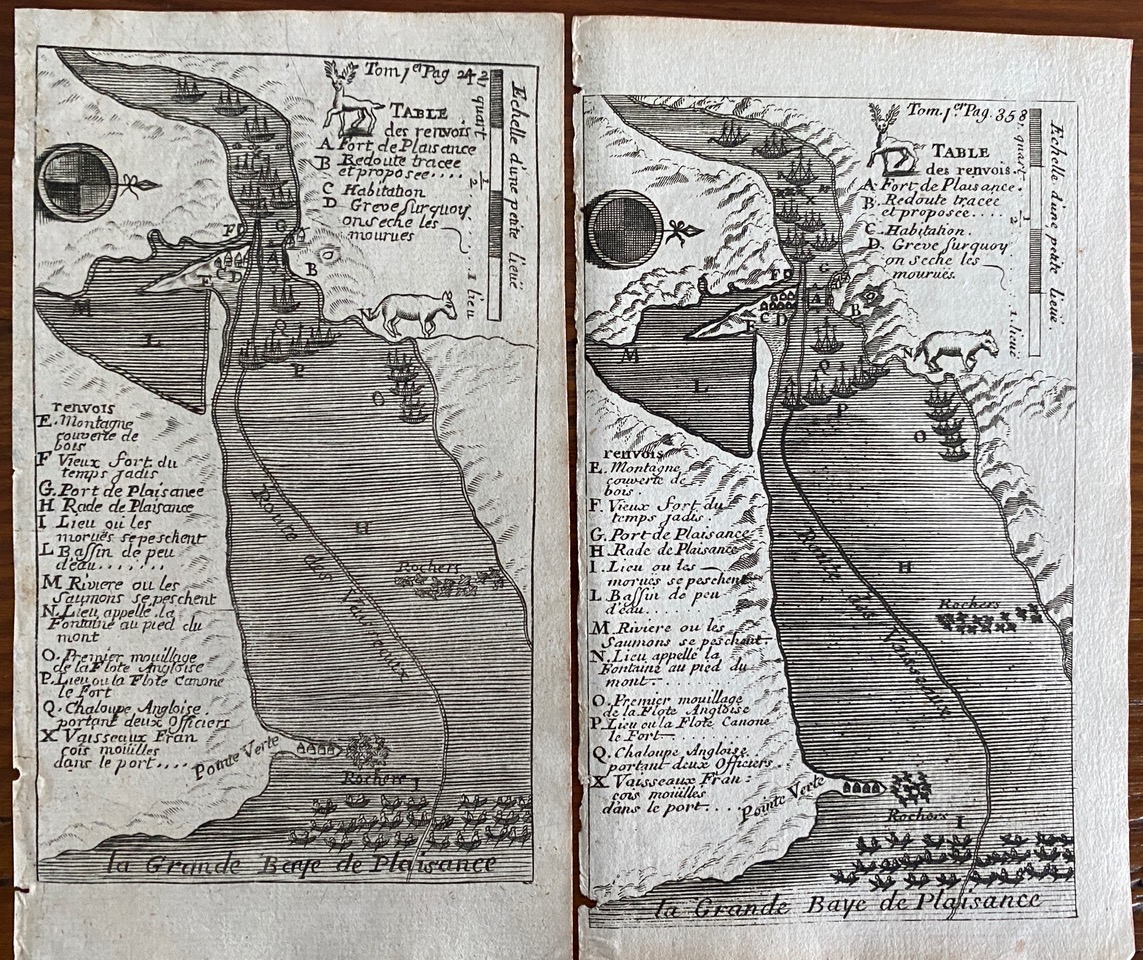 Tom 1.er Pag 24
TABLE
des renvois
A Fort de Plaisance
B Redoute tracee
et proposee....
C Habitation
D Greve sur quoy
on seche les
mourues
Echelle d'une petite lieuë
1 quart
1/2
1 lieu
F
D
G
C
A
B
E
M
L
N
Q
P
O
renvois
E. Montagne
couverte de
bois
F Vieux fort du
temps jadis
G. Port de Plaisance
H Rade de Plaisance
I Lieu ou les
morues se peschent
L Bassin de peu
d'eau.......
M Riviere ou les
Saumons se peschent
N. Lieu appellé la
Fontaine au pied du
mont
O. Premier mouillage
de la Flote Angloise
P. Lieu ou la Flote Canone
le Fort
Q. Chaloupe Angloise.
portant deux Officiers
X Vaisseaux Fran
çois mouilles
dans le port....
H
Route des Vaisseaux
Rochers
Pointe Verte
Rochers
I
la Grande Baye de Plaisance
Tom. 1.er Pag. 358
TABLE
des renvois.
A. Fort de Plaisance.
B. Redoute tracee
et proposee....
C. Habitation.
D. Greve sur quoy
on seche les
mouruës.
Echelle d'une petite lieuë
1 quart
1/2
1. lieu
X
F
D
G
A
B
C
D
E
M
L
N
Q
P
O
renvois
E. Montagne
couverte de
bois.
F. Vieux fort du
temps jadis.
G. Port de Plaisance
H. Rade de Plaisance
I. Lieu ou les
morues se peschent
L. Bassin de peu
d'eau.....
M. Riviere ou les
Saumons se peschent.
N. Lieu appelle la
Fontaine au pied du
mont.....
O. Premier mouillage
de la Flote Angloise
P. Lieu ou la Flote Canone
le Fort.
Q. Chaloupe Angloise.
portant deux Officiers.
X. Vaisseaux Fran:
cois moüilles
dans le port....
H
Route des Vaisseaux
Rochers
Pointe Verte
Rochers
I
la Grande Baye de Plaisance